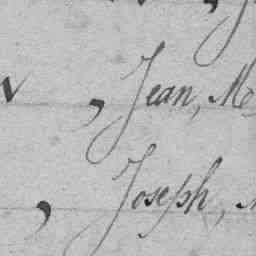 , Jean, M
, Joseph,